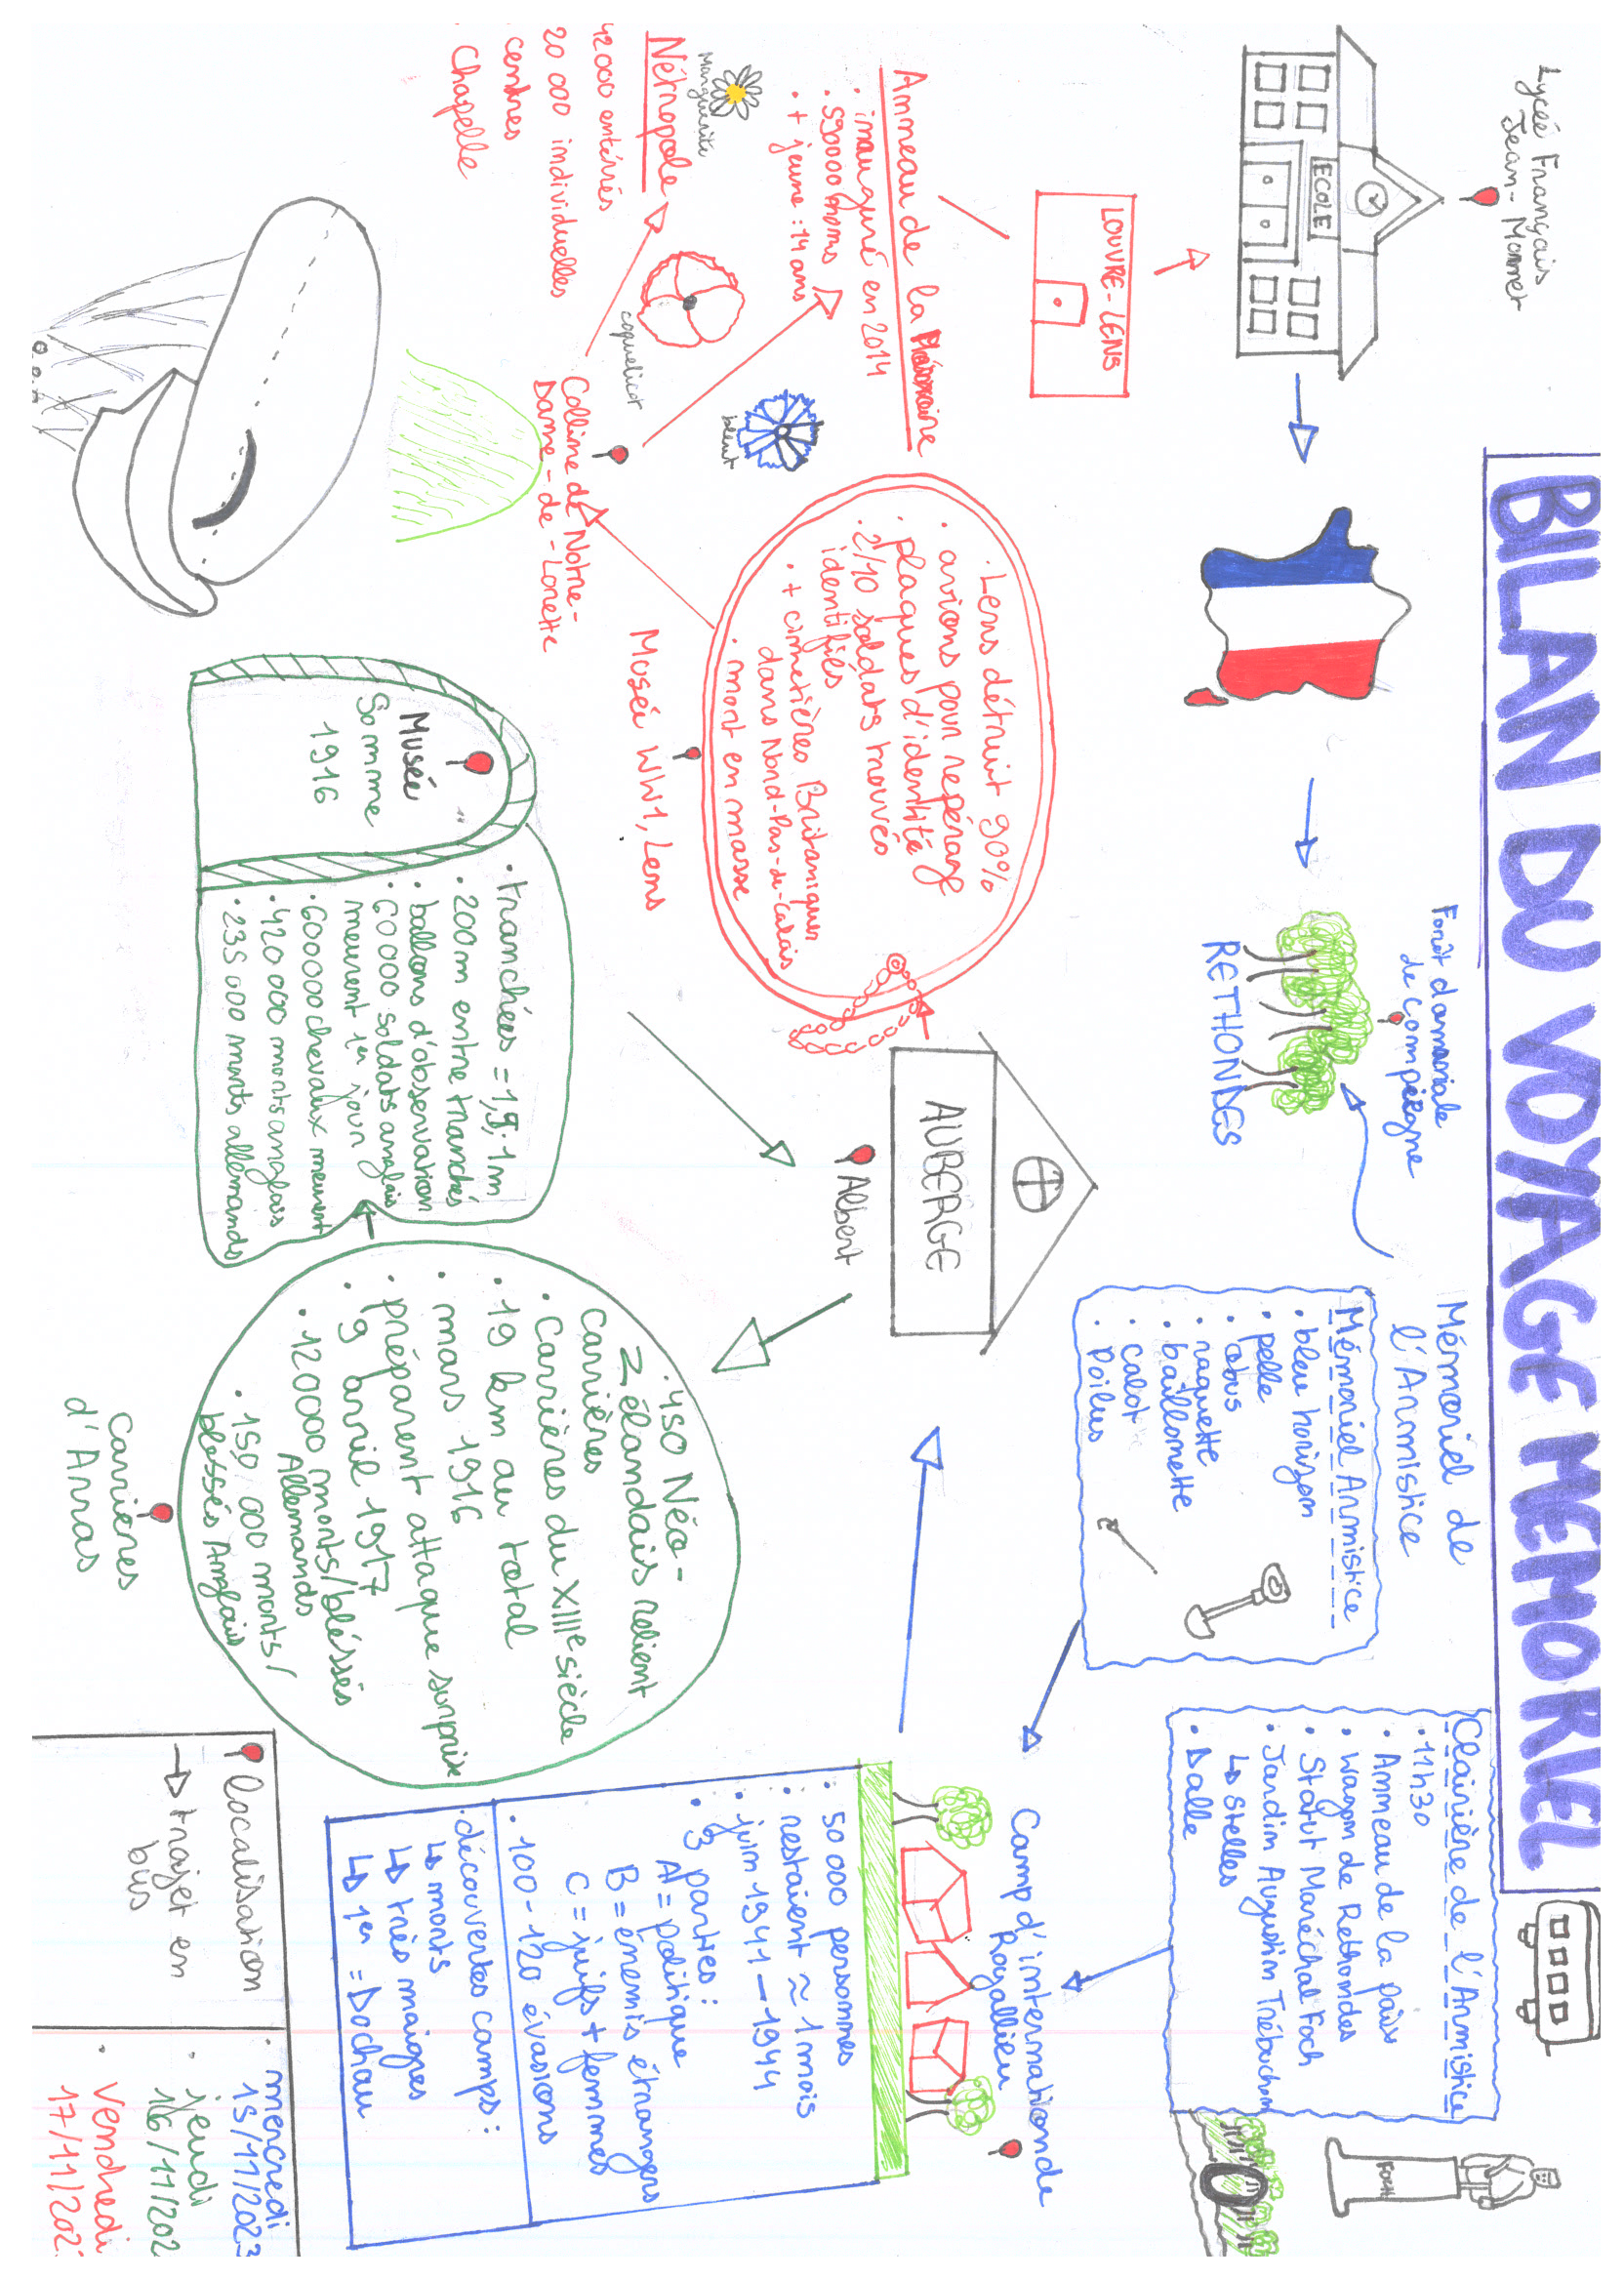 BILAN DU VOYAGE MEMORIEL
Lycéé Français
Jean-Monnet
ECOLE
Forêt domaniale
de Compiègne
RETHONDES
Mémoriel de
l'Armistice
Mémoriel Armistice
• bleu horizon
• pelle
• obus
• raquette
• baillonette
• calot
• Poilus
Clairière de l'Armistice
• 11h30
• Anneau de la paix
• Wagon de Rethondes
• Statut Maréchal Foch
• Jardin Augustin Trébuchon
↳ stelles
• Dalle
FOCH
Camp d'internationde
Royallieu
• 50 000 personnes
• restaient ≈ 1 mois
• juin 1941 - 1944
• 3 parties :
A = politique
B = énemis étrangers
C = juifs + femmes
• 100 - 120 évasions
• découvertes camps :
↳ morts
↳ très maigres
↳ 1er = Dochau
AUBERGE
Albert
• 450 Néo-
Zélandais relient
carrières
• Carrières du XIIIe siècle
• 19 km au total
• mars 1916
• préparent attaque surprise
• 9 avril 1917
• 120000 morts/bléssés
Allemands
• 150 000 morts/
blessés Anglais
Carrières
d'Arras
Musée
Somme
1916
• 200 m entre tranchés
• ballons d'observation
• 60 000 soldats anglais
meurent 1er jour
• 600000 chevaux meurent
• 420 000 morts anglais
• 235 000 morts allemands
• Lens détruit 90%
• avions pour repérage
• plaques d'identité
• 2/10 soldats trouvés
identifiés
• + cimetières Britaniques
dans Nord-Pas-de-Calais
• mort en masse
Musée WW1, Lens
Colline de Notre-
Dame-de-Lorette
Anneau de la Mémoire
• inauguré en 2014
• 590000 noms
• + jeune : 14 ans
Marguerite
coquelicot
bleuet
Nécropole
42000 entérrés
20 000 individuelles
• cendres
• Chapelle
LOUVRE-LENS
localisation
→ trajet en
bus
• mercredi
15/11/2023
• jeudi
16/11/202
• Vendredi
17/11/202